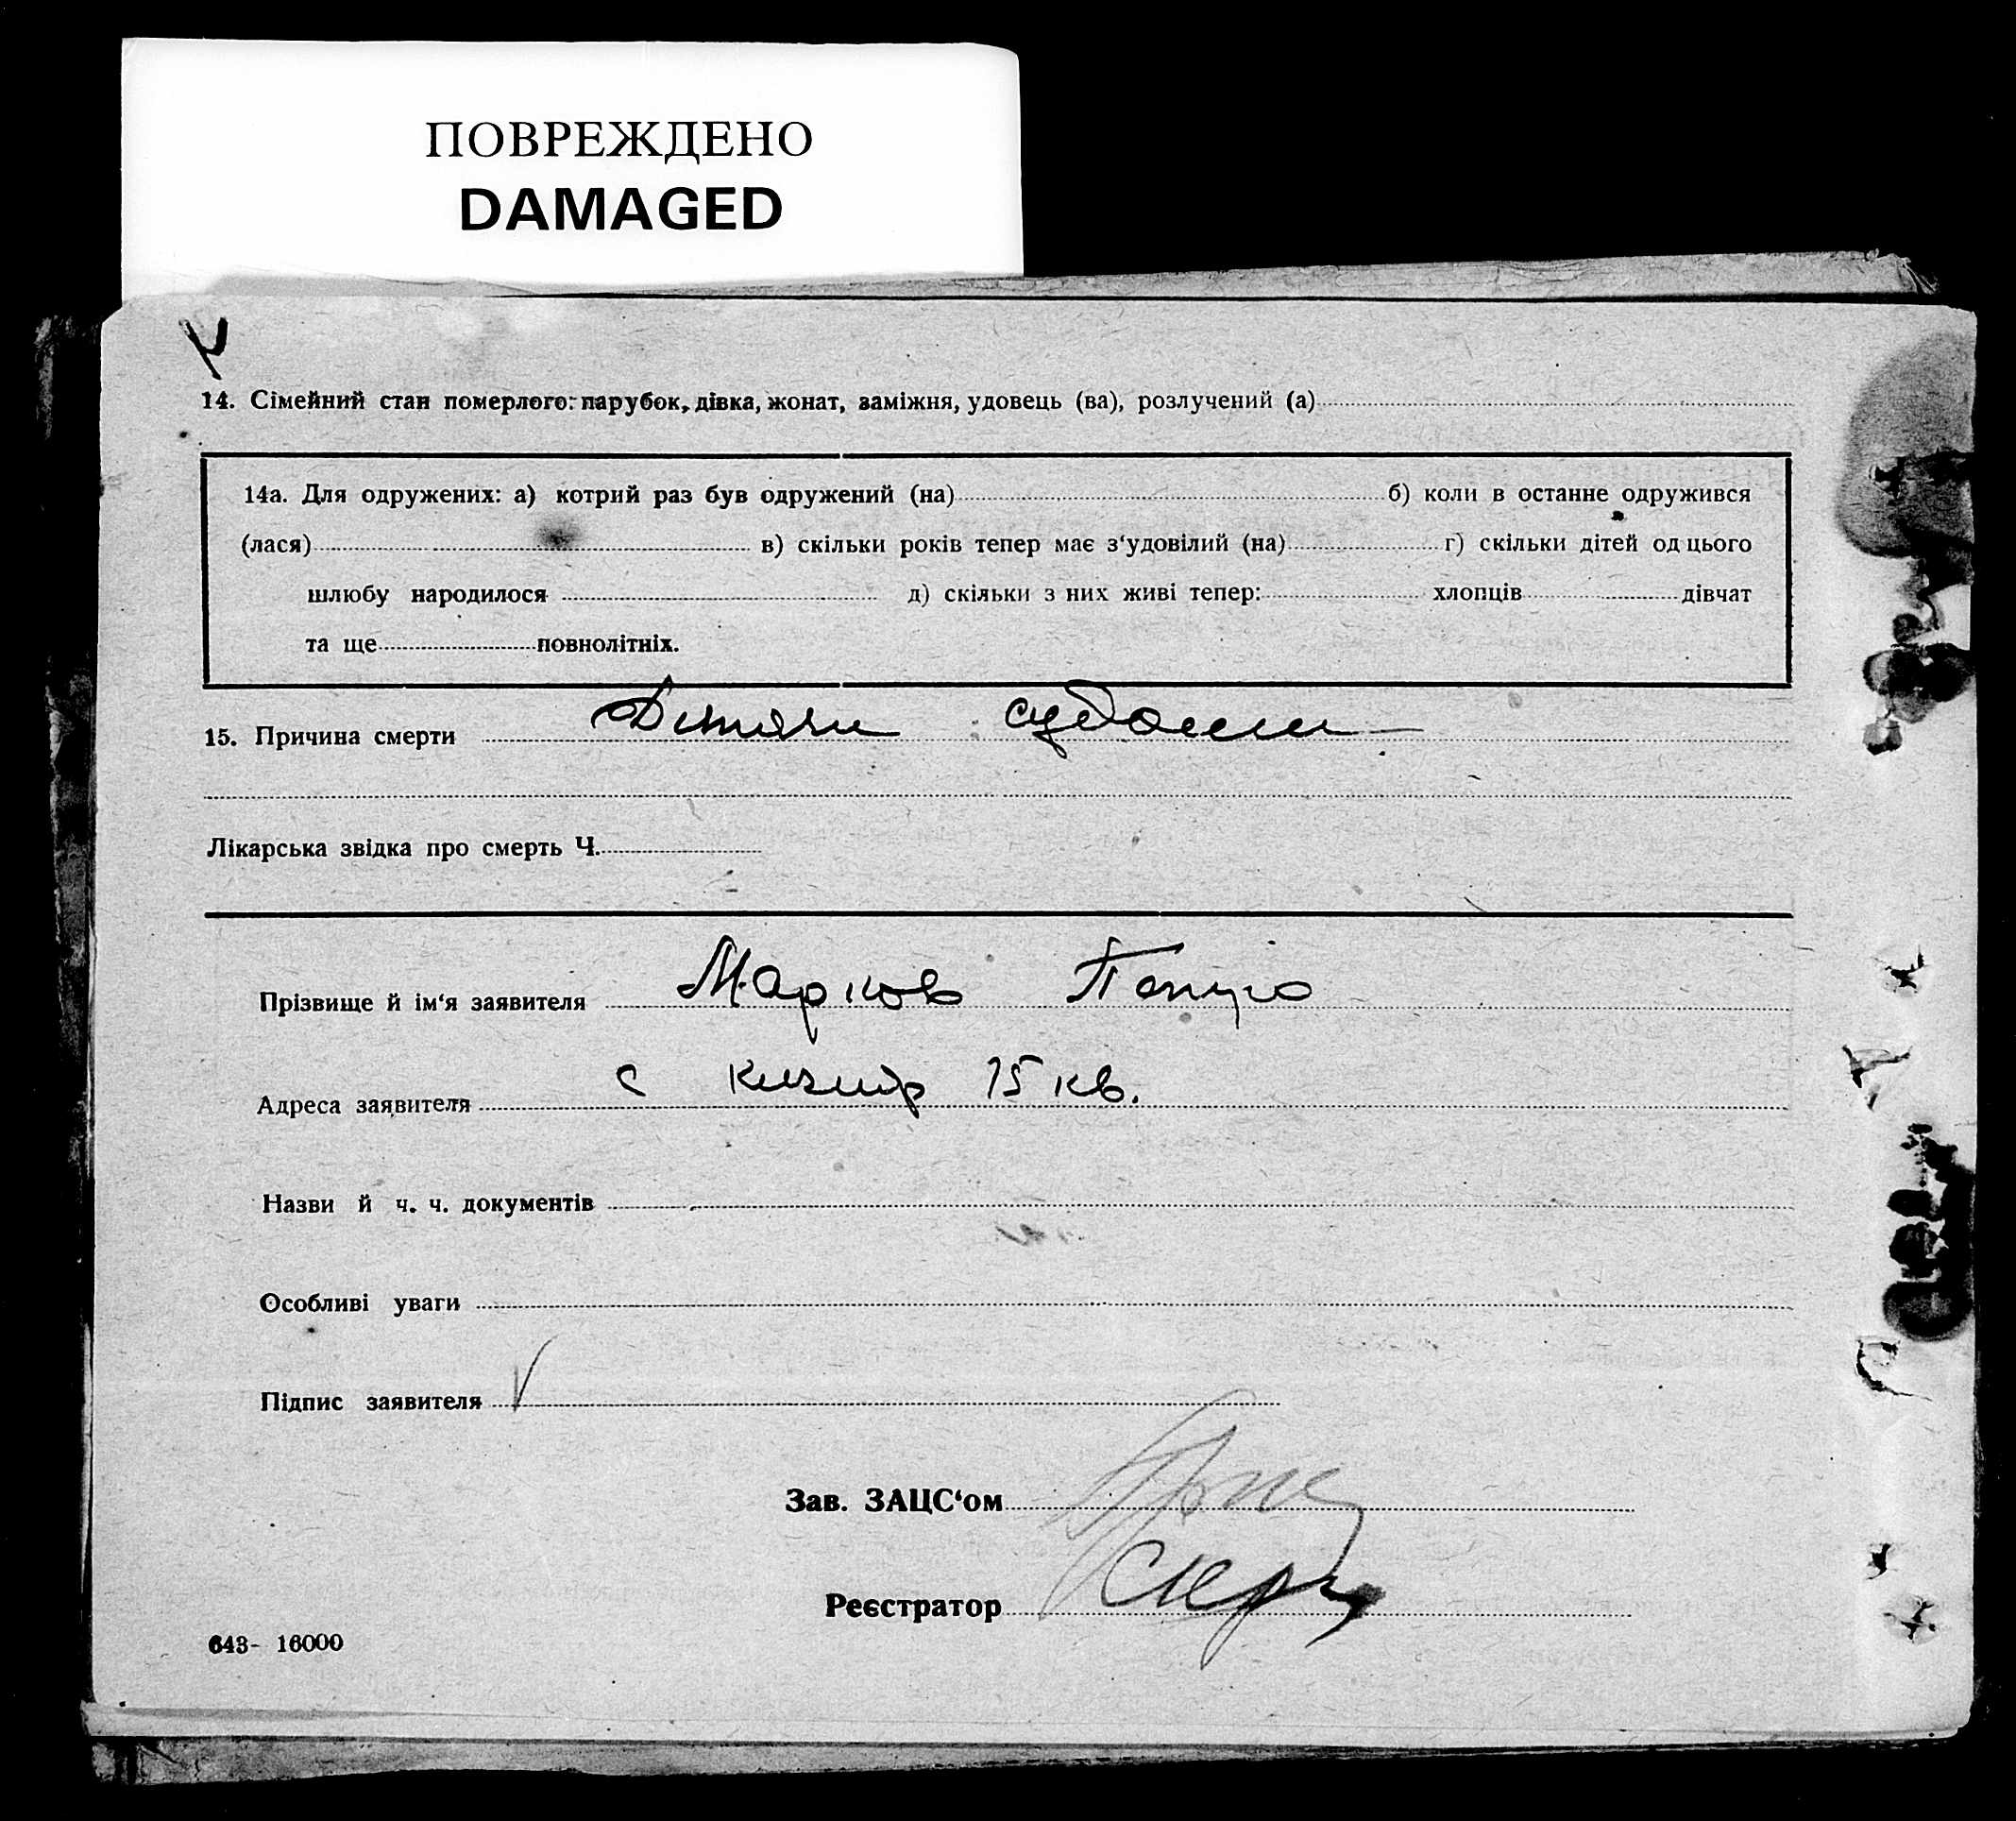 ПОВРЕЖДЕНО
DAMAGED
14. Сімейний стан померлого: парубок, дівка, жонат, заміжня, удовець (ва), розлучений (а)
14а. Для одружених: а) котрий раз був одружений (на) б) коли в останне одружився
(лася) в) скільки років тепер має з‘удовілий (на) г) скільки дітей од цього
шлюбу народилося д) скільки з них живі тепер: хлопців дівчат
та ще повнолітніх.
15. Причина смерти Дитячи судоми
Лікарська звідка про смерть Ч.
Прізвище й ім‘я заявителя Марков
Адреса заявителя с 15 кв.
Назви й ч. ч. документів
Особливі уваги
Підпис заявителя
Зав. ЗАЦС‘ом
Реєстратор
643- 16000